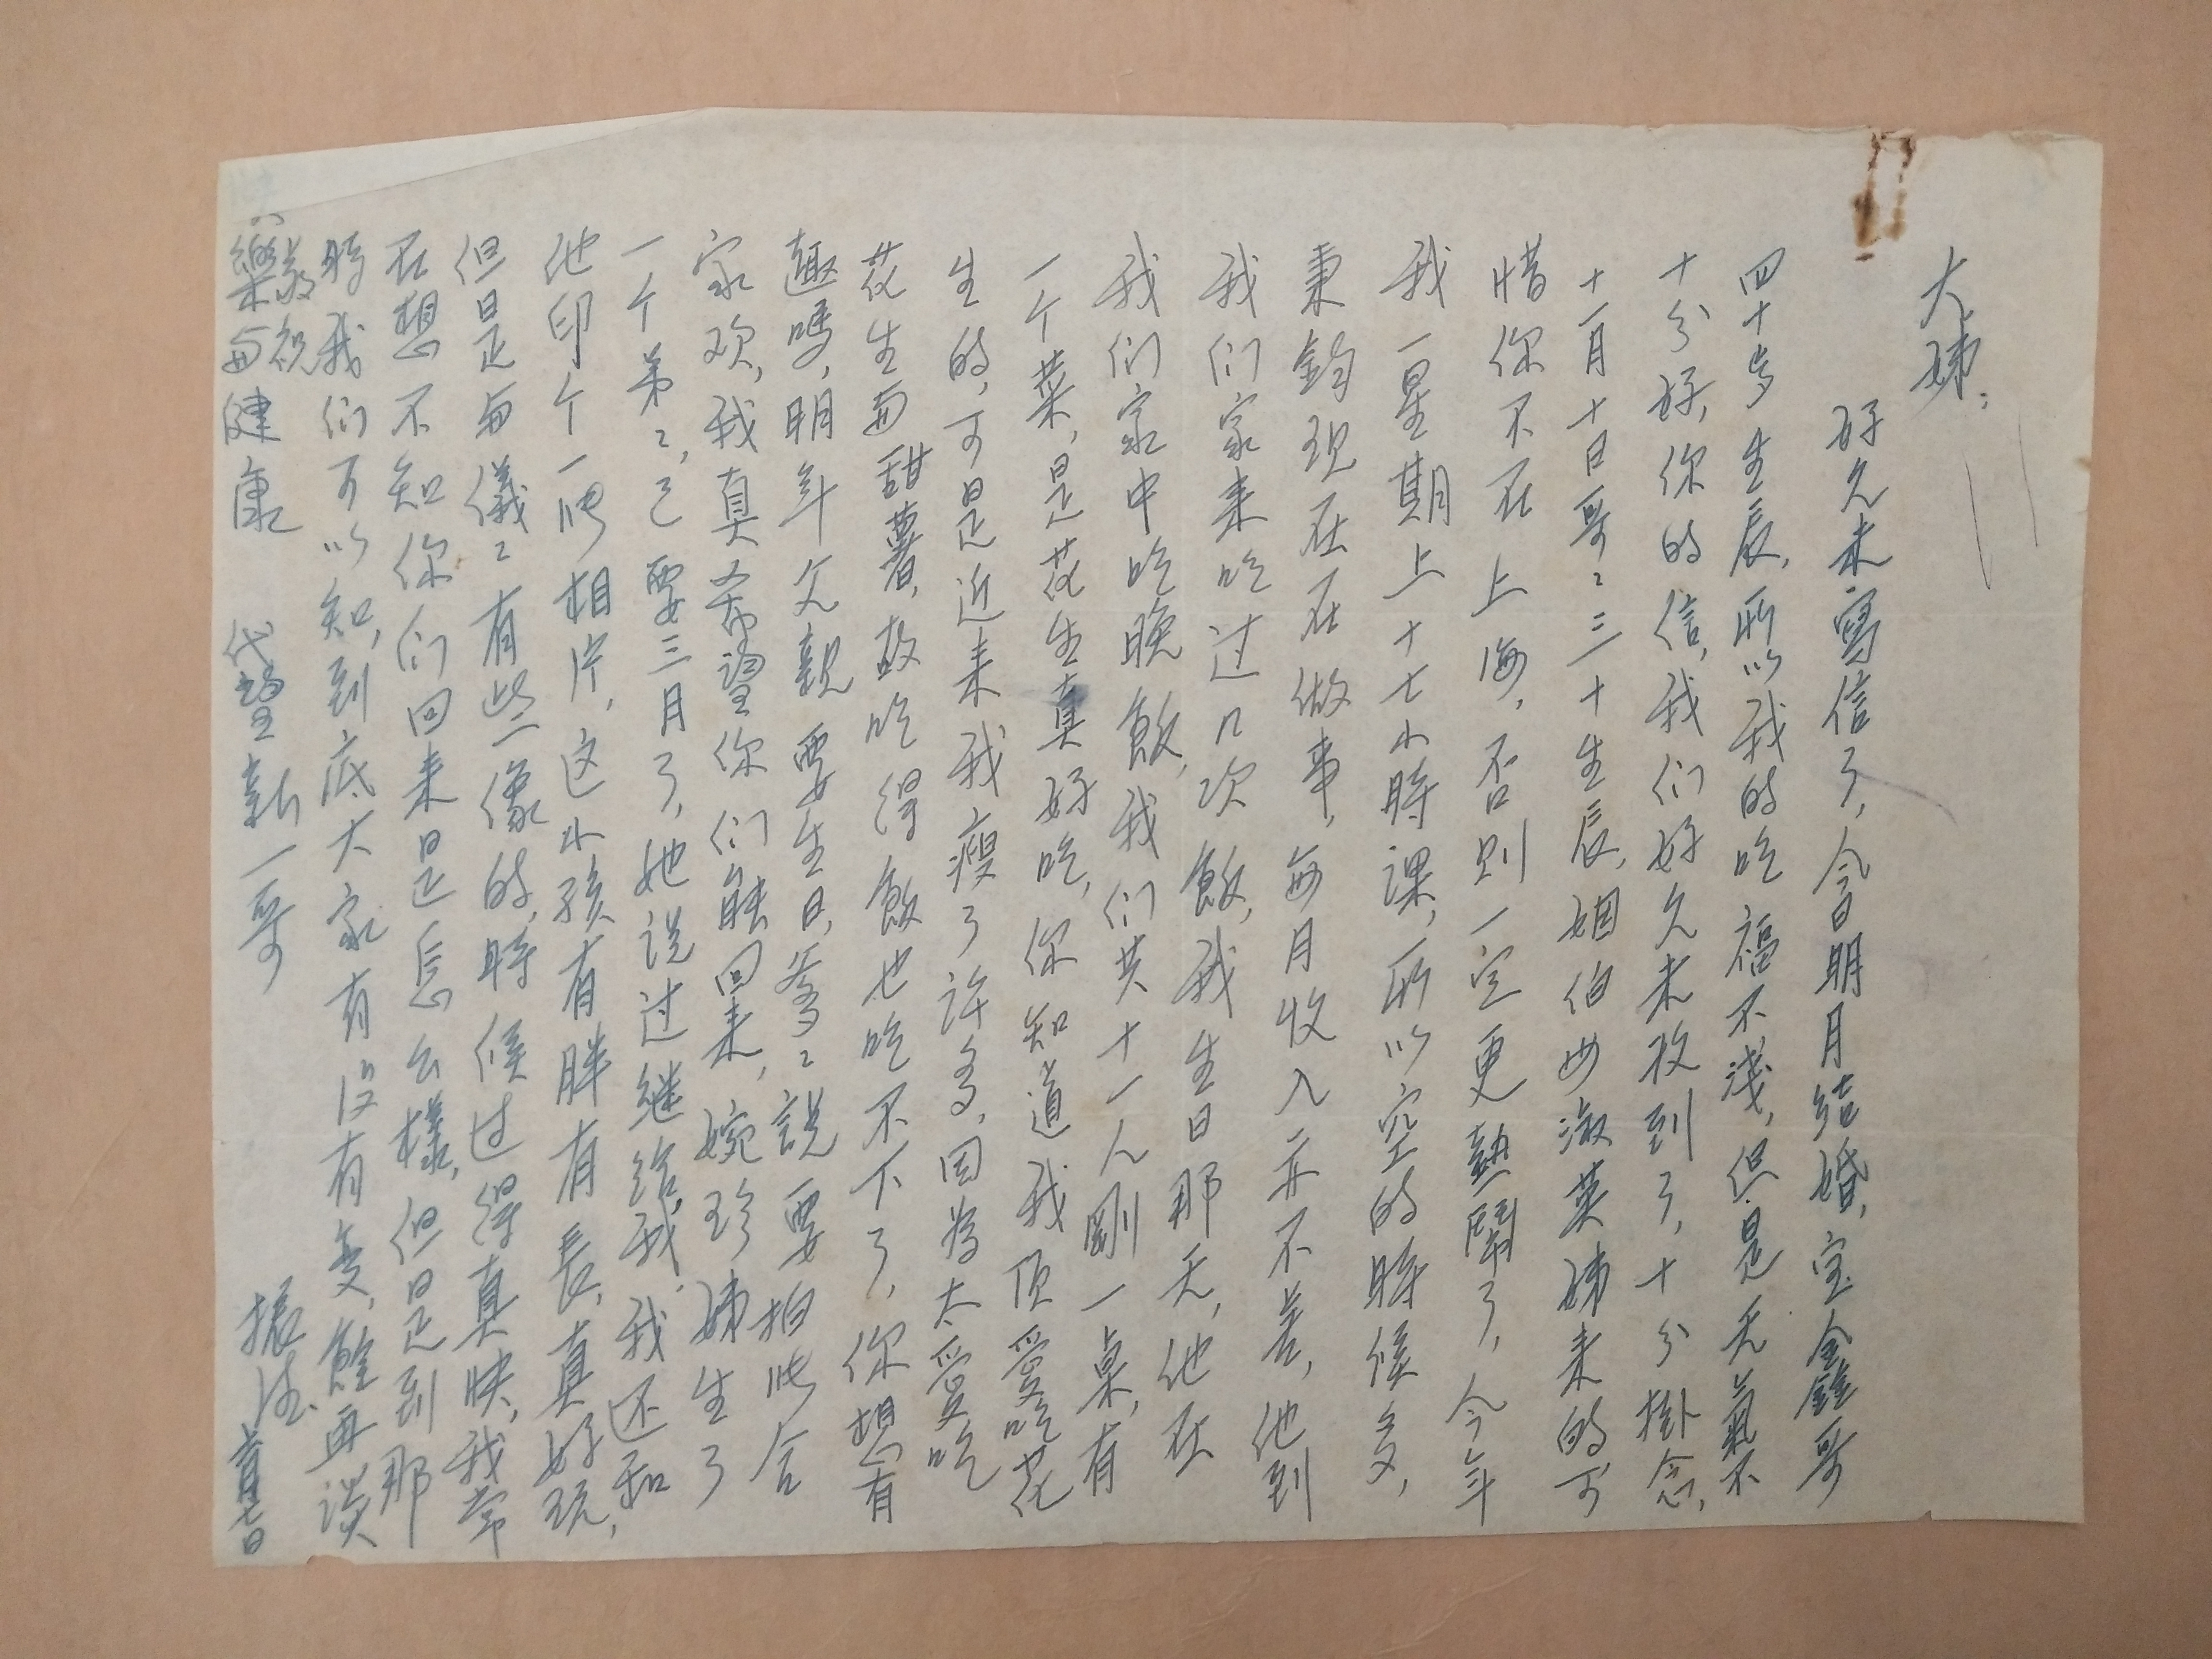 大姊：
好久未寫信了，今日明月结婚，宝金鑫哥
四十岁生辰，所以我的吃福不浅，但是天氣不
十分好，你的信，我们好久未收到了，十分掛念，
十一月十日哥〻三十生辰，姻伯母淑英姊来的，可
惜你不在上海，否则一定更熱鬧了，今年
我一星期上十七小時课，所以空的時候多，
秉鈞现在在做事，每月收入亦不差，他到
我们家来吃过几次飯，我生日那天，他在
我们家中吃晚飯，我们共十一人剛一桌，有
一个菜，是花生真好吃，你知道我顶爱吃花
生的，可是近来我瘦了許多，因為太爱吃
花生与甜薯，故吃得飯也吃不下了，你想有
趣嗎，明年父親要生日，爹〻說要拍照合
家欢，我真希望你们能回来，婉珍姊生了
一个弟〻，已要三月了，她说过继给我，我还和
他印个一张相片，这小孩有胖有長，真好玩，
但是与儀〻有些像的，時候过得真快，我常
在想不知你们回来是怎么樣，但是到那
時我们可以知，到底大家有没有变，餘再谈
敬祝
樂与健康 代望新一哥
振德